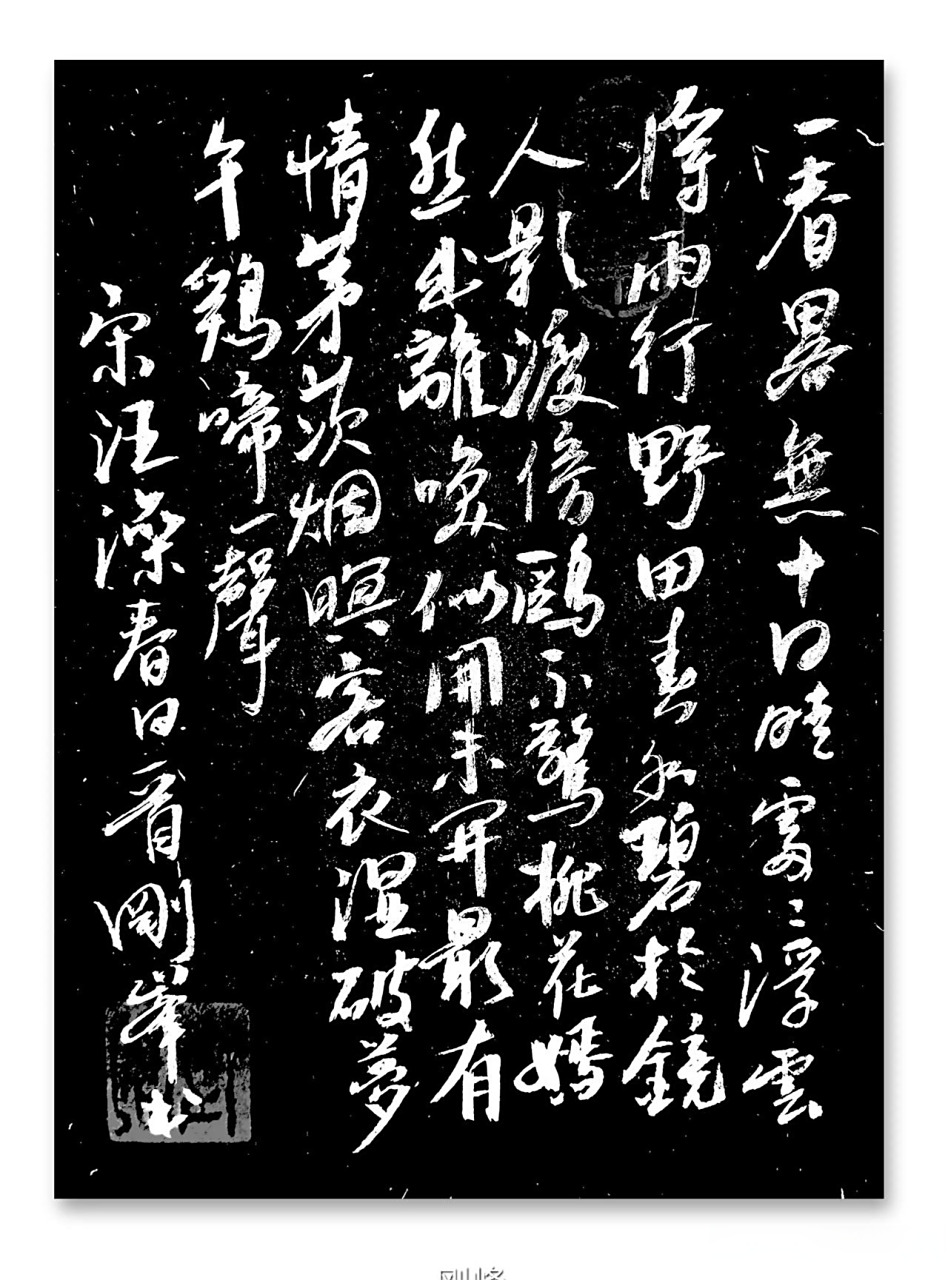 一春畧無十日晴處〻浮雲
將雨行野田春水碧於鏡
人影渡傍鷗不驚桃花嫣
然出離咲似開未開最有
情茅茨烟暝客衣濕破夢
午鷄啼一聲
宋汪澡春日一首剛峯書